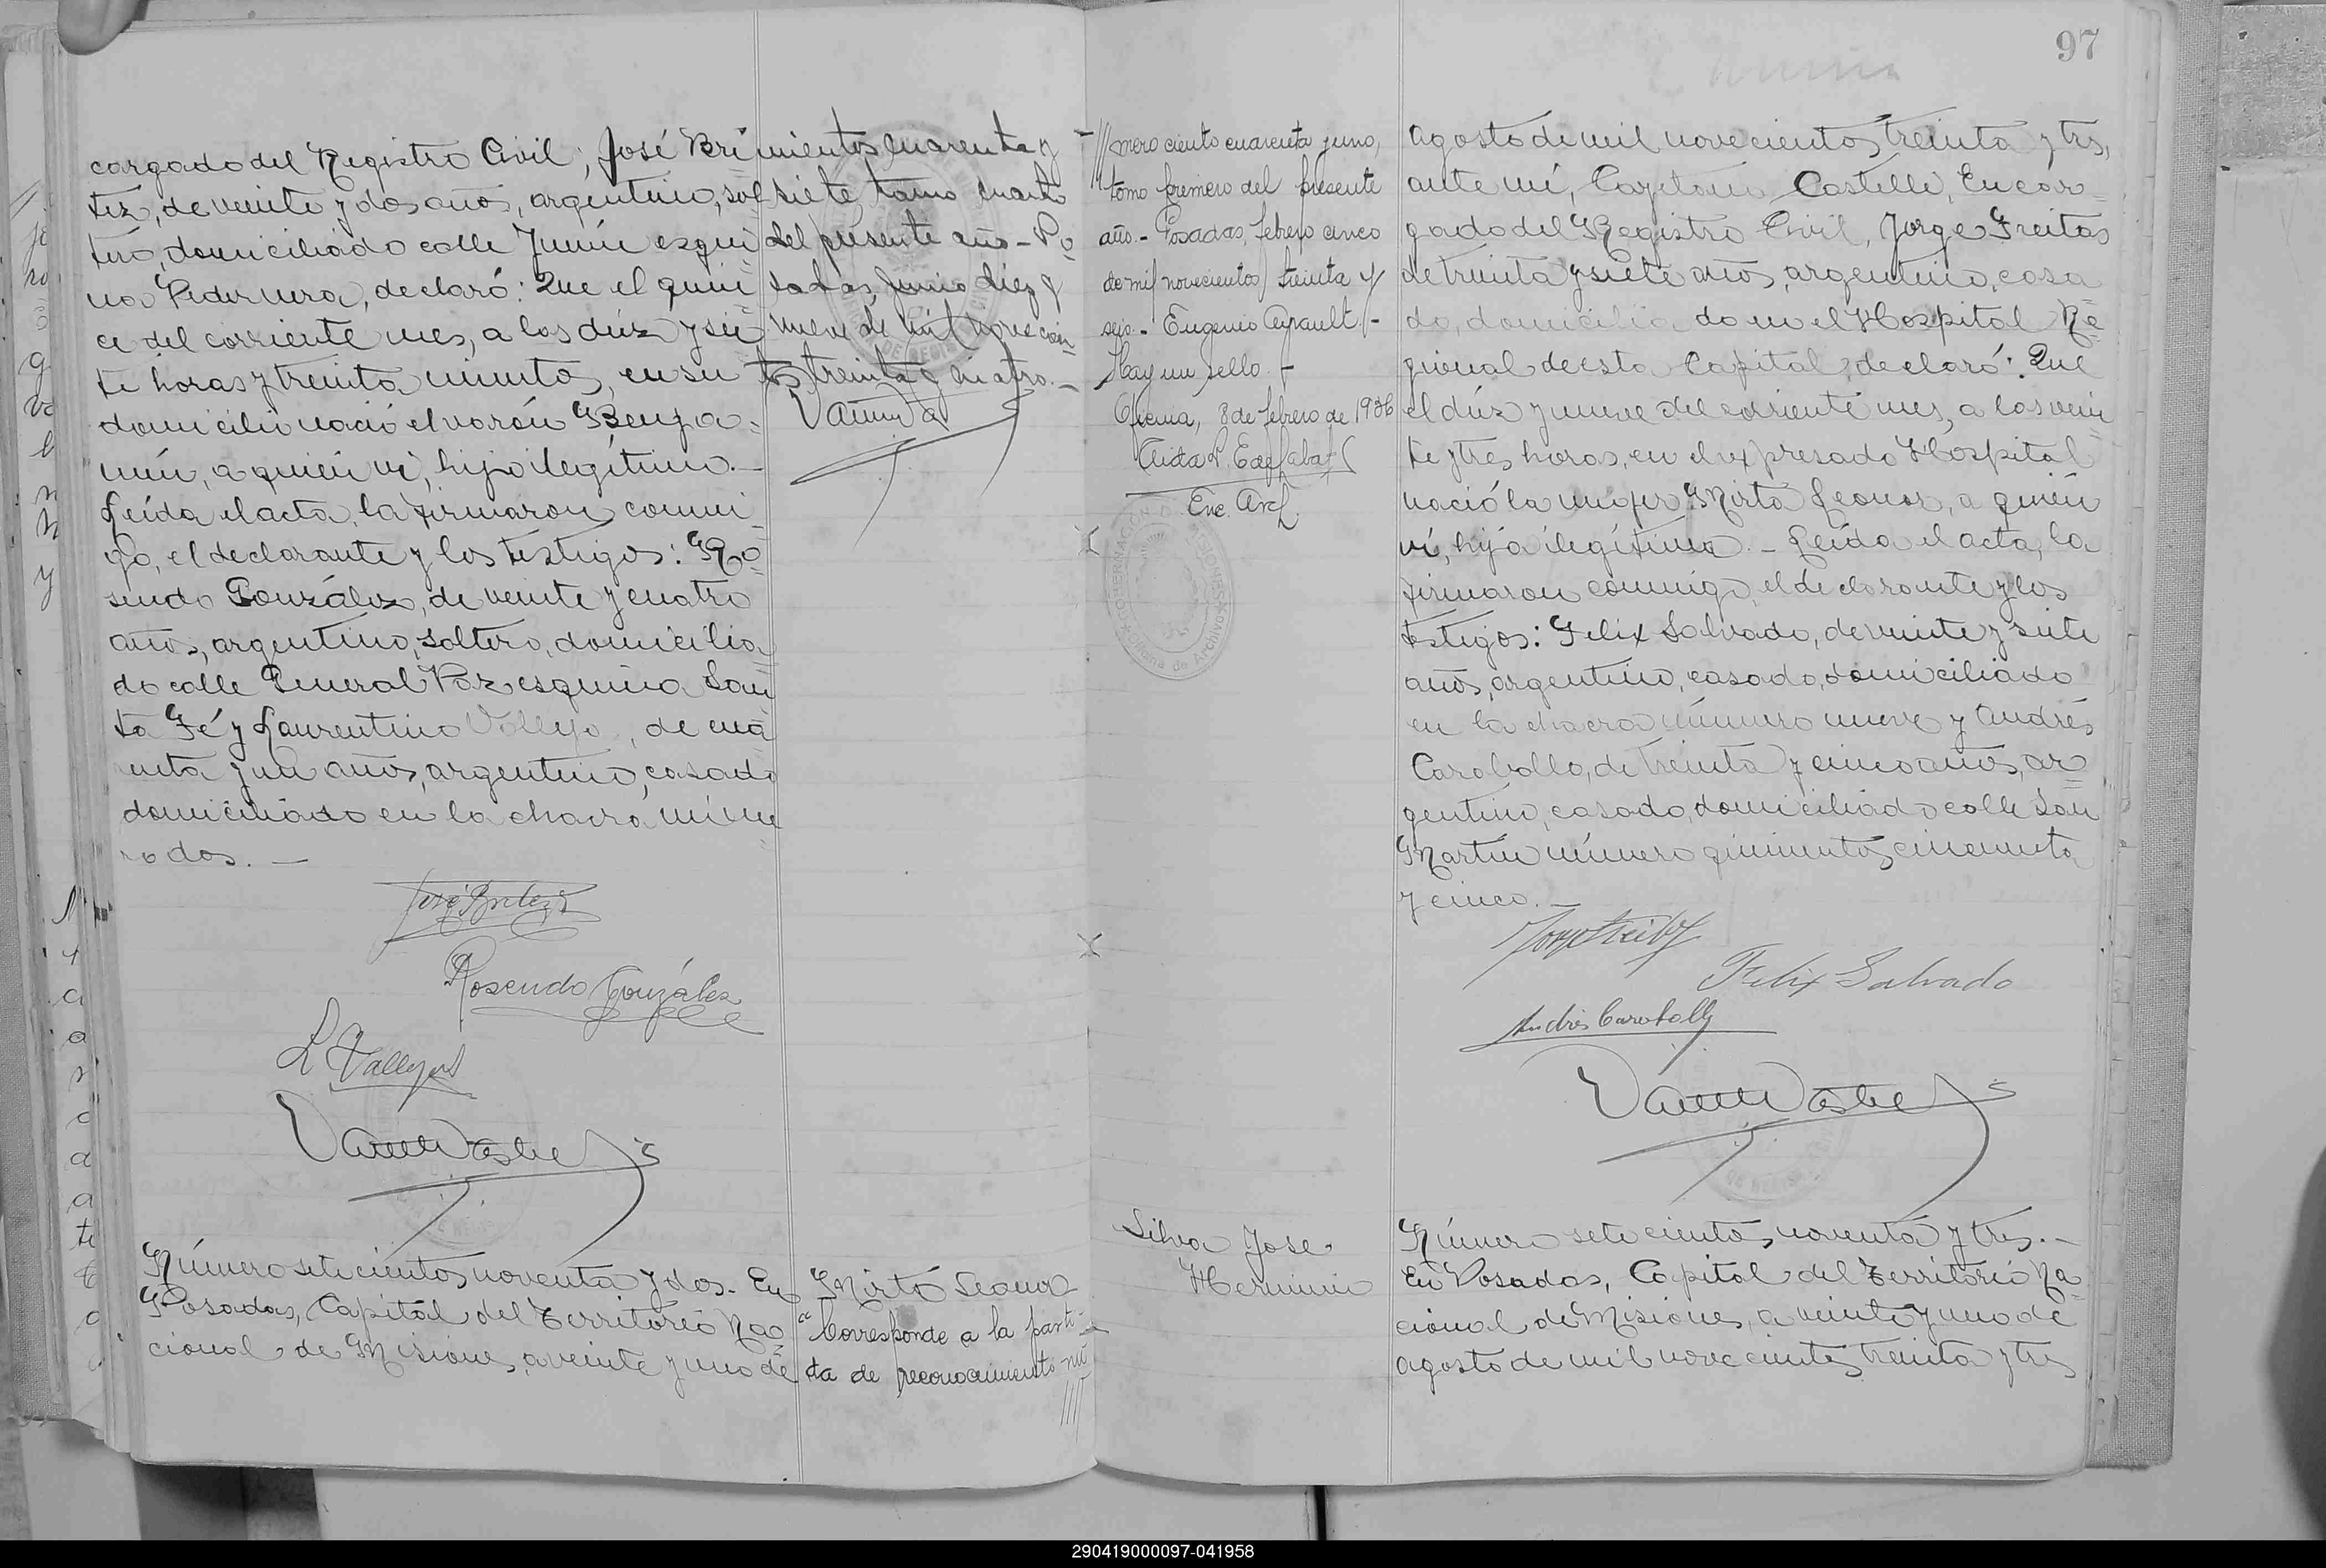 97
cargado del Registro Civil, José Brí
tez, de veinte y dos años, argentino, sol
tero, domiciliado calle Junín esqui
na Pedernera, declaró: Que el quin
ce del corriente mes, a las diez y sie
te horas y treinta minutos, en su
domicilio nació el varón Benja
mín, a quién ví, hijo ilegítimo.—
Leída el acta, la firmaron conmi
go, el declarante y los testigos: Ro
sendo González, de veinte y cuatro
años, argentino, soltero, domicilia
do calle General Paz esquina San
ta Fé y Laurentino Vallejo, de cua
renta y un años, argentino, casado
domiciliado en la chacra núme
ro dos. —
mientos cuarenta y
siete, tomo cuarto
del presente año - Po
sadas, Junio diez y
nueve de mil novecien
tos treinta y cuatro. —
José Britez
Rosendo González
L Vallejos
Número setecientos noventa y dos. En
Posadas, Capital del Territorio Na
cional de Misiones, a veinte y uno de
Mirta Leonor
"Corresponde a la parti
da de reconocimiento nú
////
///mero ciento cuarenta y uno,
tomo primero del presente
año.- Posadas, febrero cinco
de mil novecientos treinta y
seis.- Eugenio Ayrault.-
Hay un sello. -
Oficina, 8 de febrero de 1936
Enc. Arch.
GOBERNACION MISIONES
Oficina de Archivo
agosto de mil novecientos treinta y tres,
ante mí, Cayetano Castelli, Encar
gado del Registro Civil, Jorge Freitas
de treinta y siete años, argentino, casa
do, domiciliado en el Hospital Re
gional de esta Capital, declaró: Que
el diez y nueve del corriente mes, a las vein
te y tres horas, en el expresado Hospital
nació la mujer Mirta Leonor, a quién
ví, hija ilegítima. - Leída el acta, la
firmaron conmigo, el declarante y los
testigos: Felix Salvado, de veinte y siete
años, argentino, casado, domiciliado
en la chacra número nueve y Andrés
Caraballo, de treinta y cinco años, ar
gentino, casado, domiciliado calle San
Martín número quinientos cincuenta
y cinco. —
Jorge Freitas
Felix Salvado
Andrés Caraballo
Silva José
Herminio
Número setecientos noventa y tres. —
En Posadas, Capital del Territorio Na
cional de Misiones, a veinte y uno de
agosto de mil novecientos treinta y tres
290419000097-041958